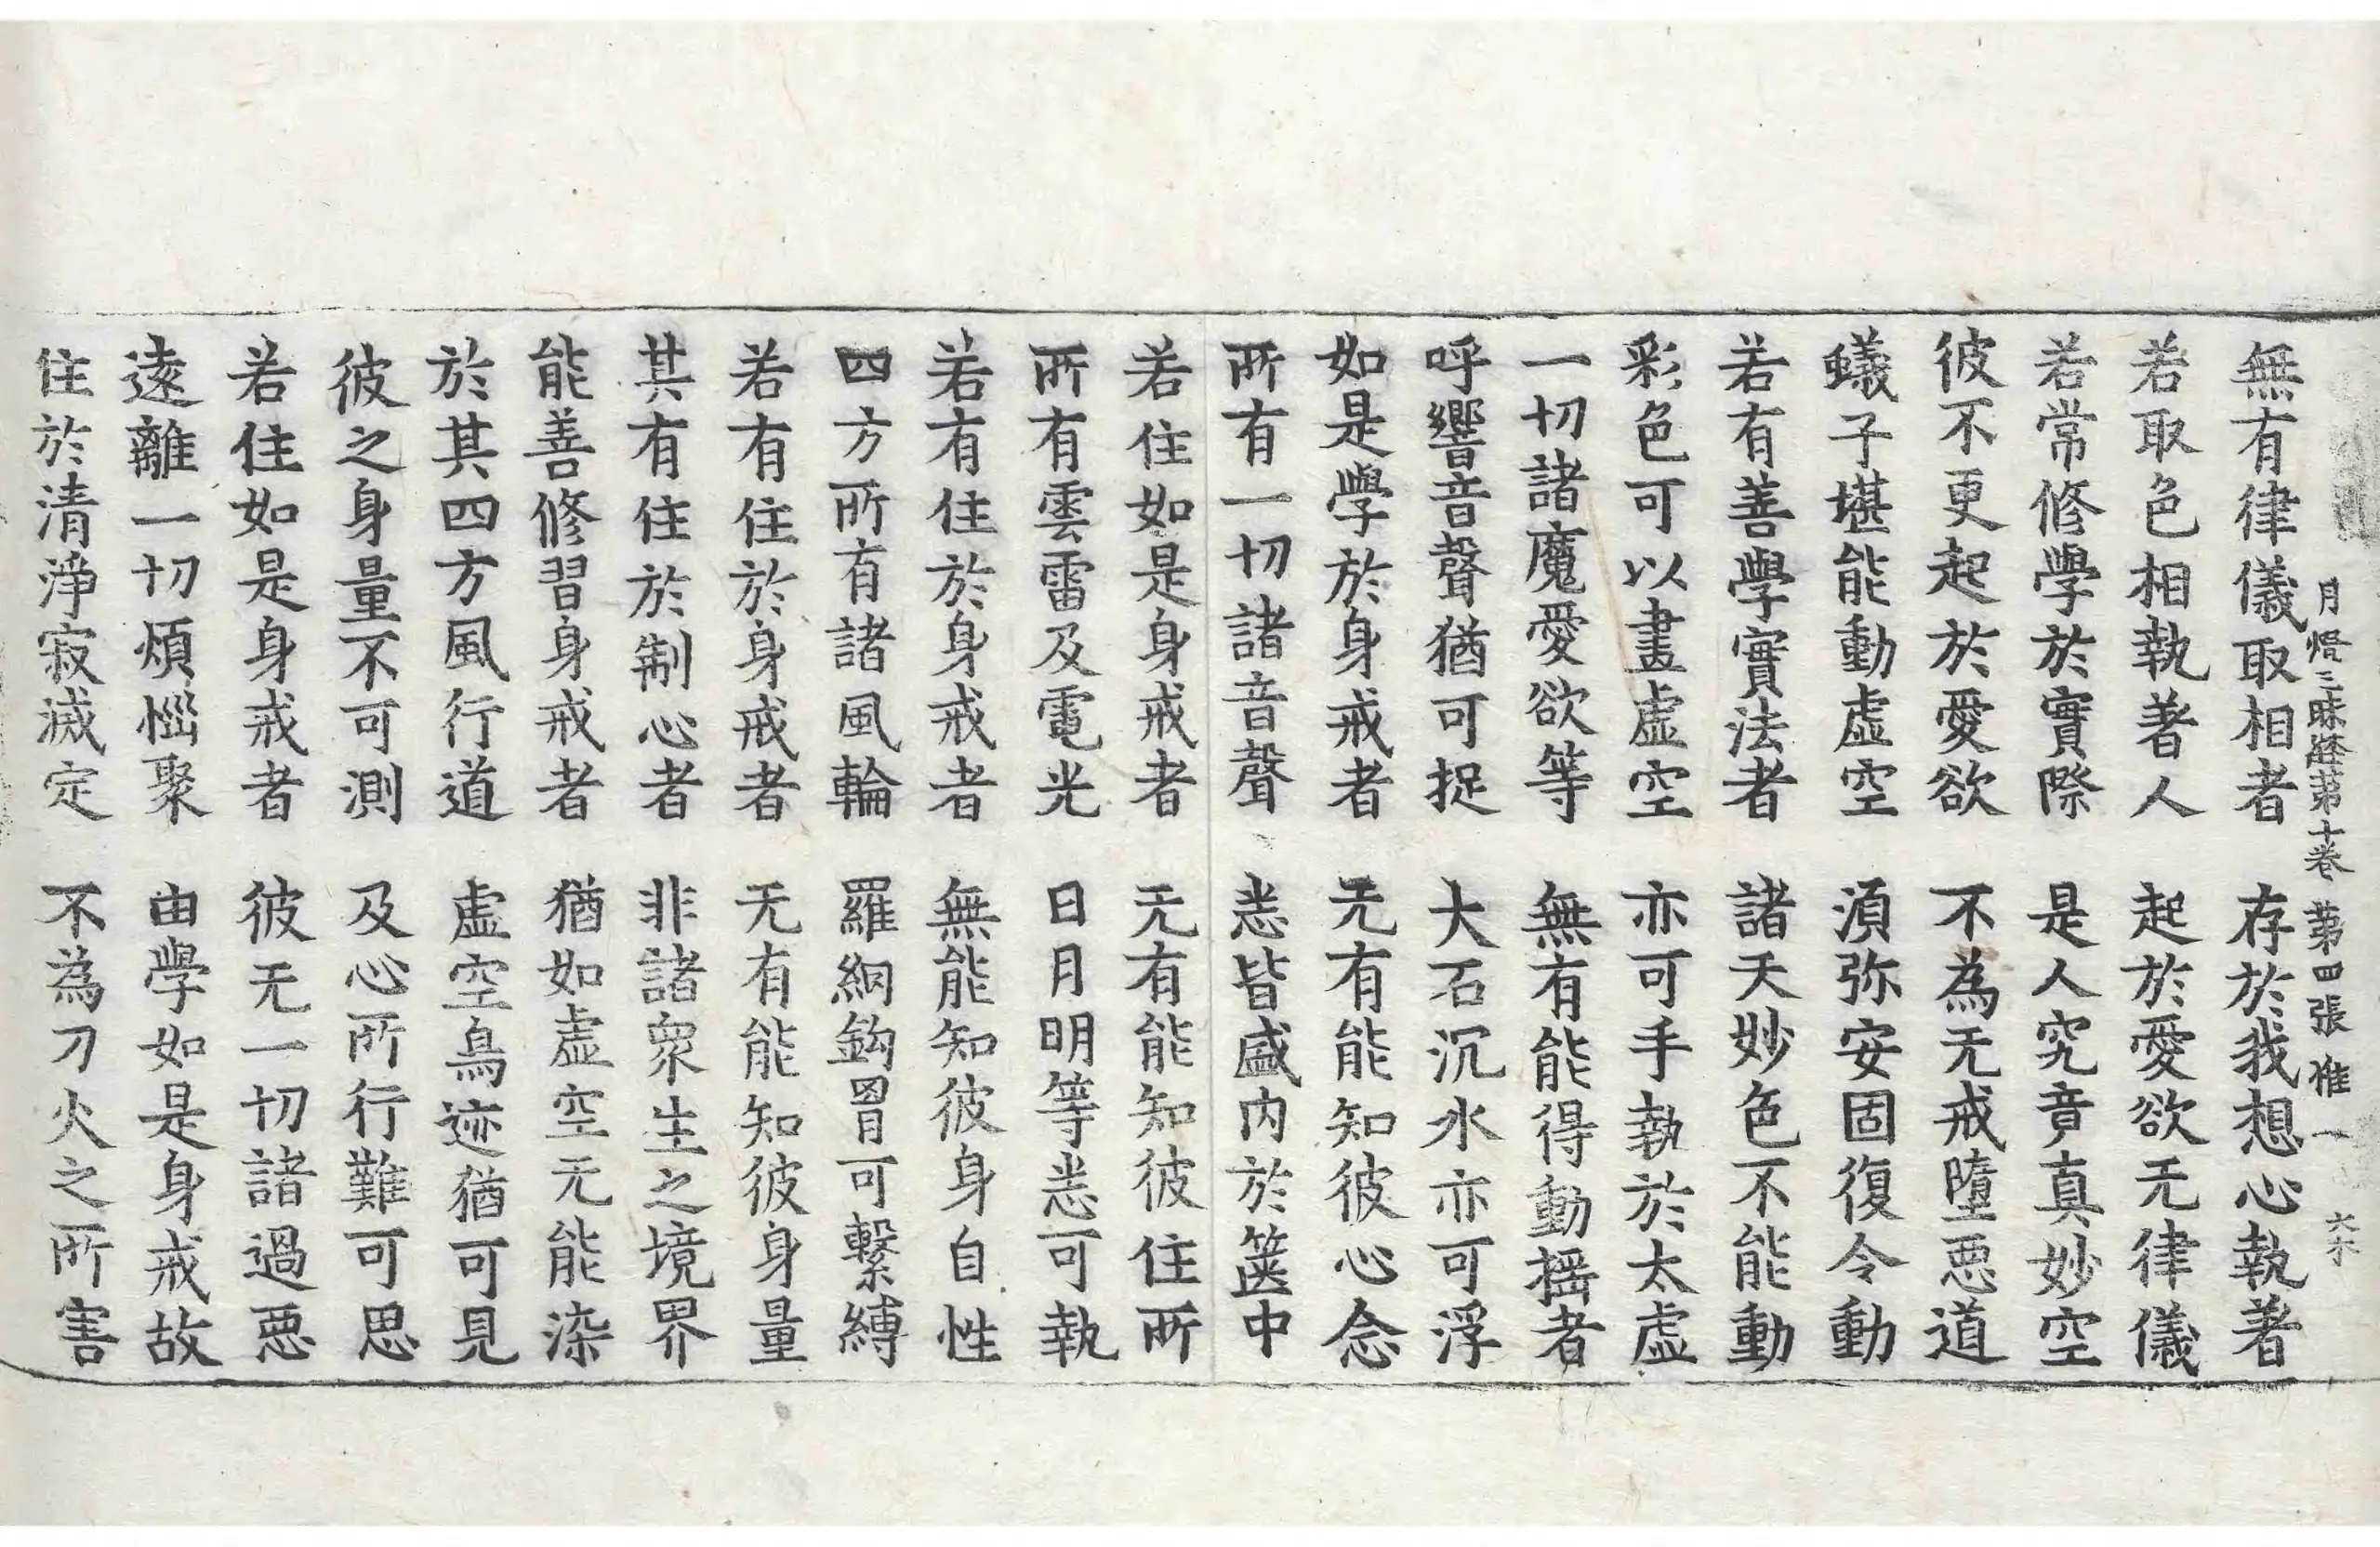 月燈三昧經第十卷 第四張 惟一
無有律儀取相者 存於我想心執著
若取色相執著人 起於愛欲无律儀
若常修學於實際 是人究竟真妙空
彼不更起於愛欲 不為无戒墮惡道
蟻子堪能動虛空 湏弥安固復令動
若有善學實法者 諸天妙色不能動
彩色可以畫虛空 亦可手執於太虛
一切諸魔愛欲等 無有能得動搖者
呼響音聲猶可捉 大石沉水亦可浮
如是學於身戒者 无有能知彼心念
所有一切諸音聲 悉皆盛内於篋中
若住如是身戒者 无有能知彼住所
所有雲雷及電光 日月明等悉可執
若有住於身戒者 無能知彼身自性
四方所有諸風輪 羅網鈎罥可繫縛
若有住於身戒者 无有能知彼身量
其有住於制心者 非諸衆生之境界
能善修習身戒者 猶如虛空无能染
於其四方風行道 虛空鳥迹猶可見
彼之身量不可測 及心所行難可思
若住如是身戒者 彼无一切諸過惡
遠離一切煩惱聚 由學如是身戒故
住於清淨寂滅定 不為刀火之所害